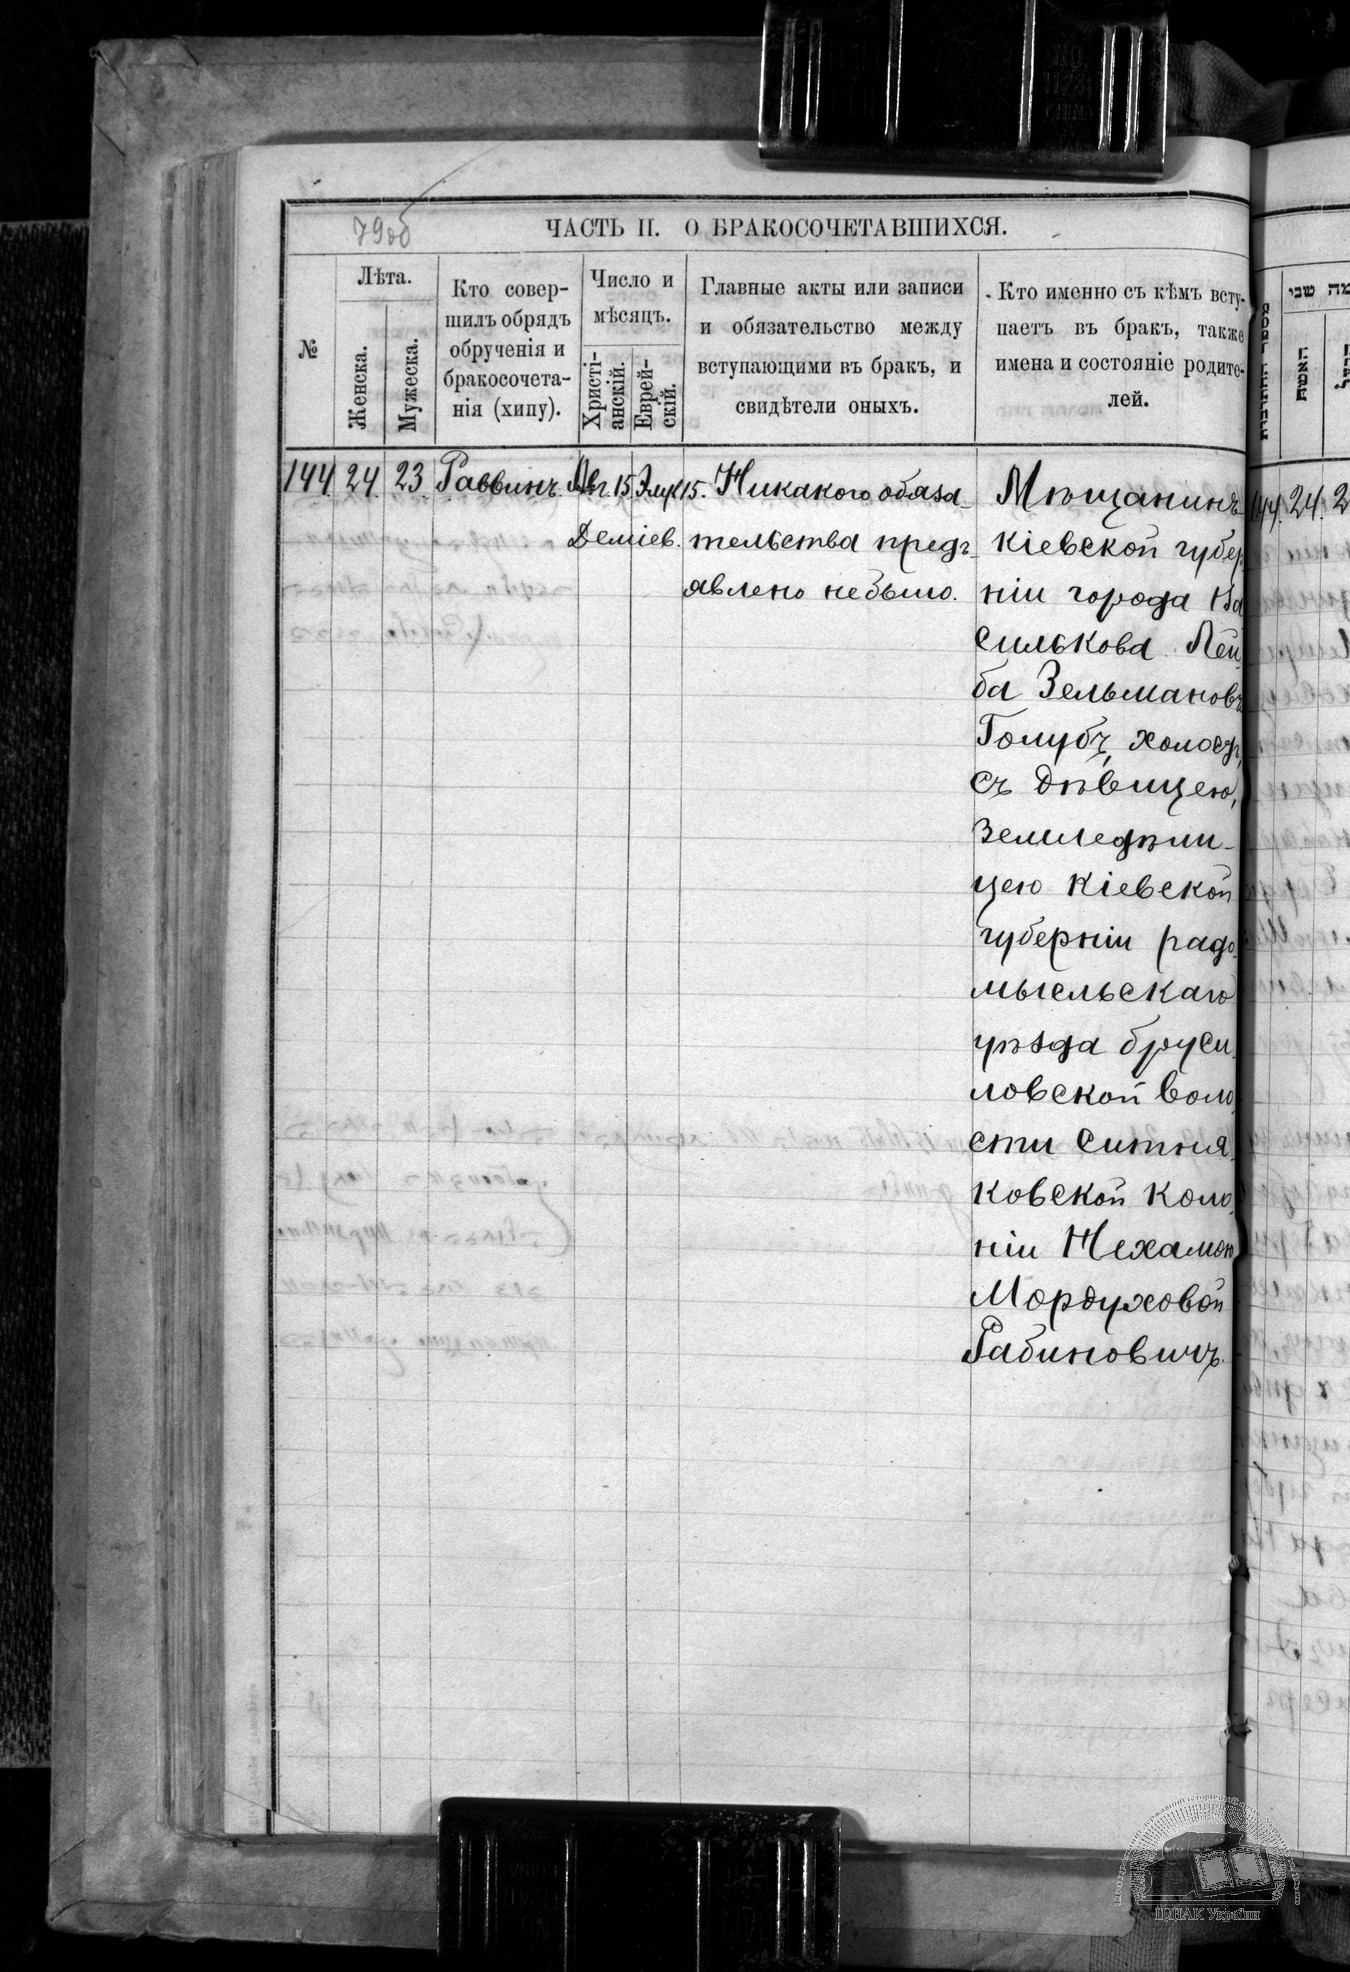 79об
ЧАСТЬ II. О БРАКОСОЧЕТАВШИХСЯ.
№
Лѣта.
Женска.
Мужеска.
Кто совер-
шилъ обрядъ
обрученія и
бракосочета-
нія (хипу).
Число и
мѣсяцъ.
Христі-
анскій.
Еврей-
скій.
Главные акты или записи
и обязательство между
вступающими въ бракъ, и
свидѣтели оныхъ.
Кто именно съ кѣмъ всту-
паетъ въ бракъ, также
имена и состояніе родите-
лей.
144 24. 23 Раввинъ. Авг. 15. Элул 15. Никакого обяза-
Деміев. тельства предъ-
явлено небыло.
Мѣщанинъ
Кіевской губер
ніи города Ва
силькова Лей
ба Зельмановъ
Голубъ, холостъ,
съ дѣвицею,
Земледѣли-
цею Кіевской
губерніи радо-
мысльскаго
уѣзда бруси-
ловской воло-
сти Ситня-
ковской Коло-
ніи Нехамою
Мордуховой
Рабиновичъ.
האשה
144. 24. 2
ЦДІАК України